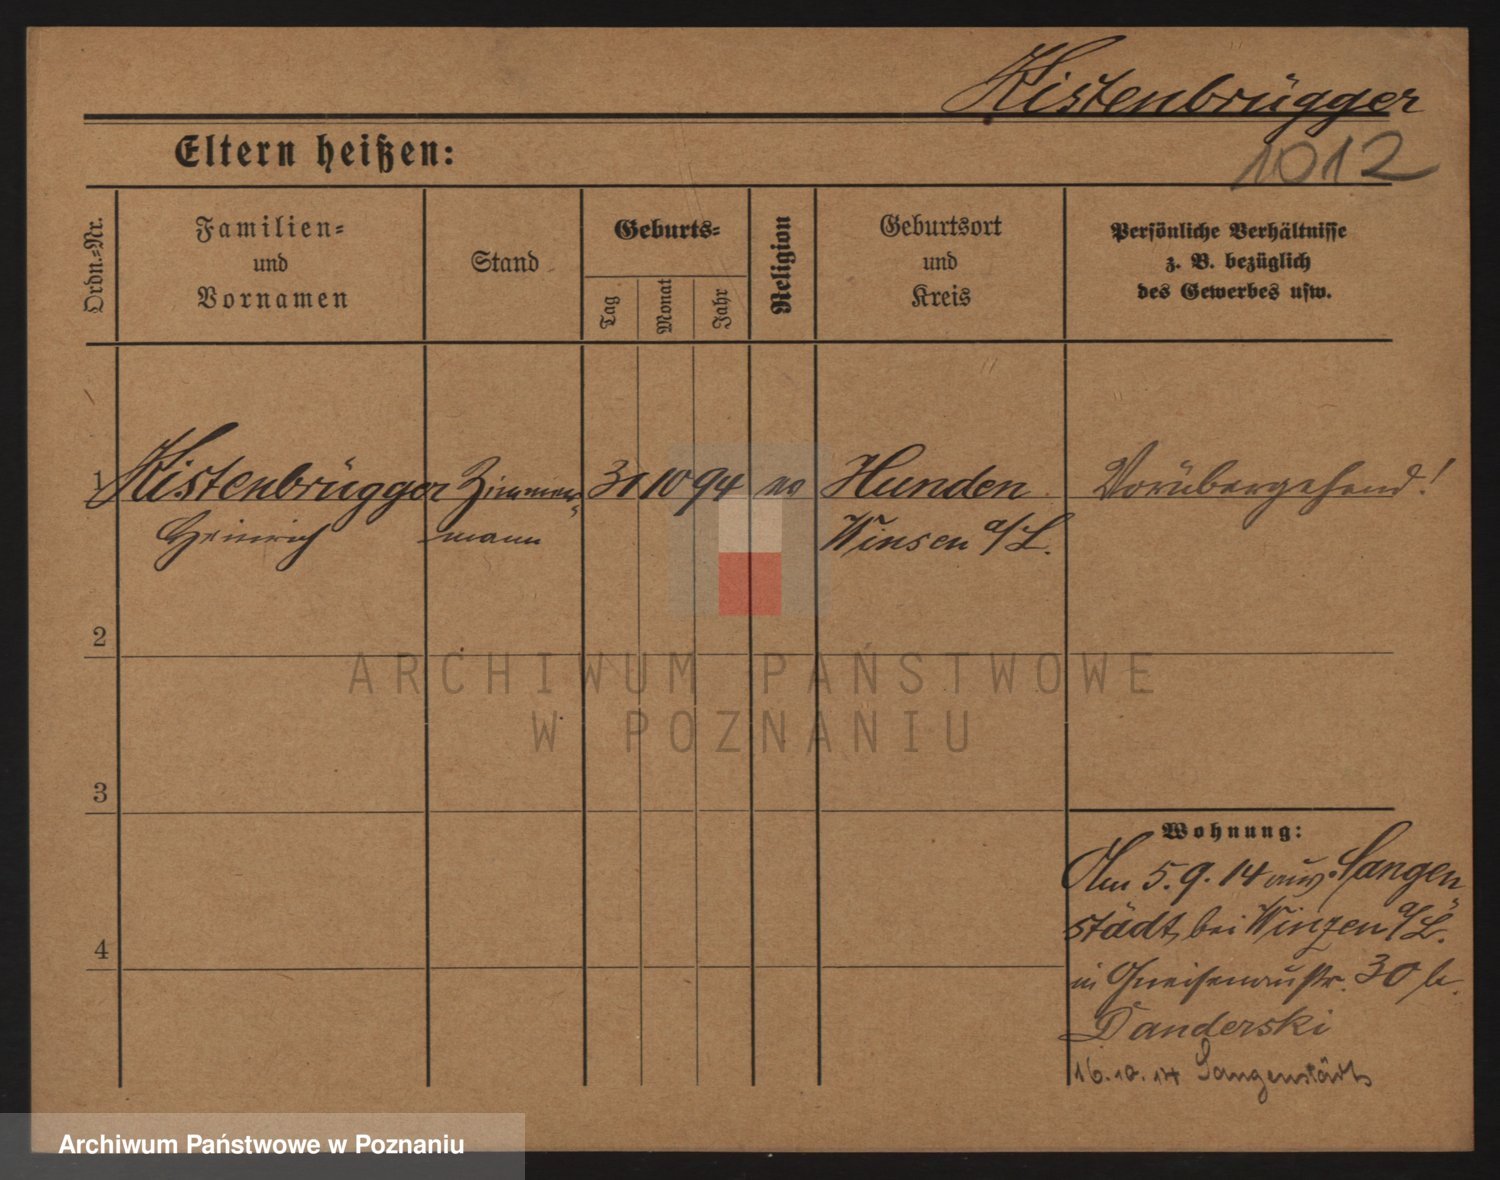 Kistenbrügger
1012
Eltern heißen:
Ordn.-Nr.
Familien-
und
Vornamen
Stand
Geburts-
Tag
Monat
Jahr
Religion
Geburtsort
und
Kreis
Persönliche Verhältnisse
z. B. bezüglich
des Gewerbes usw.
1 Kistenbrügger Zimmer- 31 10 94 ev Hunden Vorübergehend!
Heinrich mann Winsen a/L.
2
ARCHIWUM PAŃSTWOWE
W POZNANIU
3
Wohnung:
Am 5.9.14 aus Langen
städt, bei Winzen a/L.
in Gneisenaustr. 30 b.
Danderski
4
16.10.14 Langenstädt
Archiwum Państwowe w Poznaniu